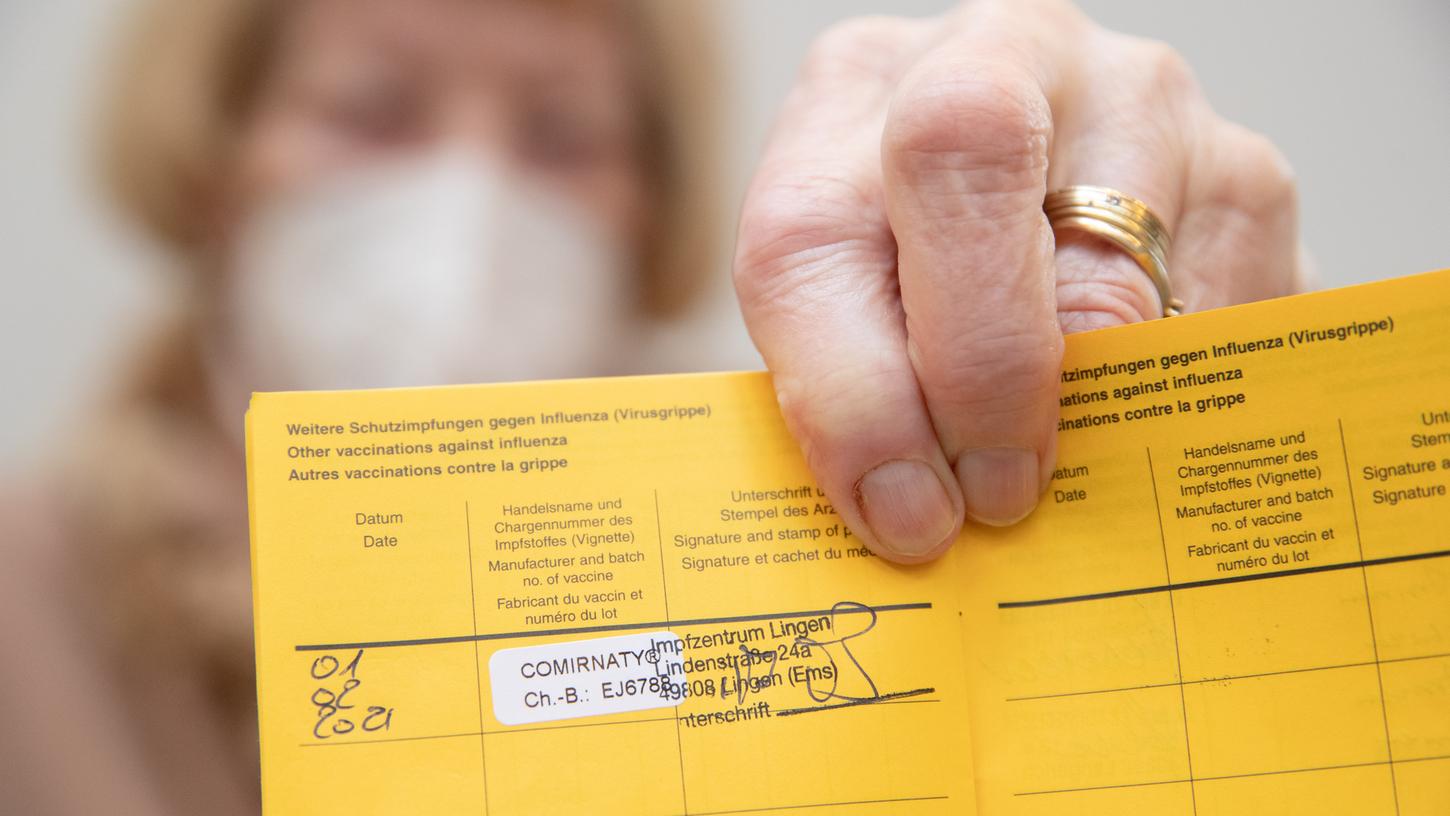 Weitere Schutzimpfungen gegen Influenza (Virusgrippe)
Other vaccinations against influenza
Autres vaccinations contre la grippe
Datum
Date
Handelsname und
Chargennummer des
Impfstoffes (Vignette)
Manufacturer and batch
no. of vaccine
Fabricant du vaccin et
numéro du lot
Unterschrift u
Stempel des Arz
Signature and stamp of p
Signature et cachet du méd
01
02
2021
COMIRNATY®
Ch.-B.: EJ6788
Impfzentrum Lingen
Lindenstraße 24a
49808 Lingen (Ems)
nterschrift
tzimpfungen gegen Influenza (Virusgrippe)
nations against influenza
cinations contre la grippe
atum
Date
Handelsname und
Chargennummer des
Impfstoffes (Vignette)
Manufacturer and batch
no. of vaccine
Fabricant du vaccin et
numéro du lot
Unt
Stem
Signature a
Signature